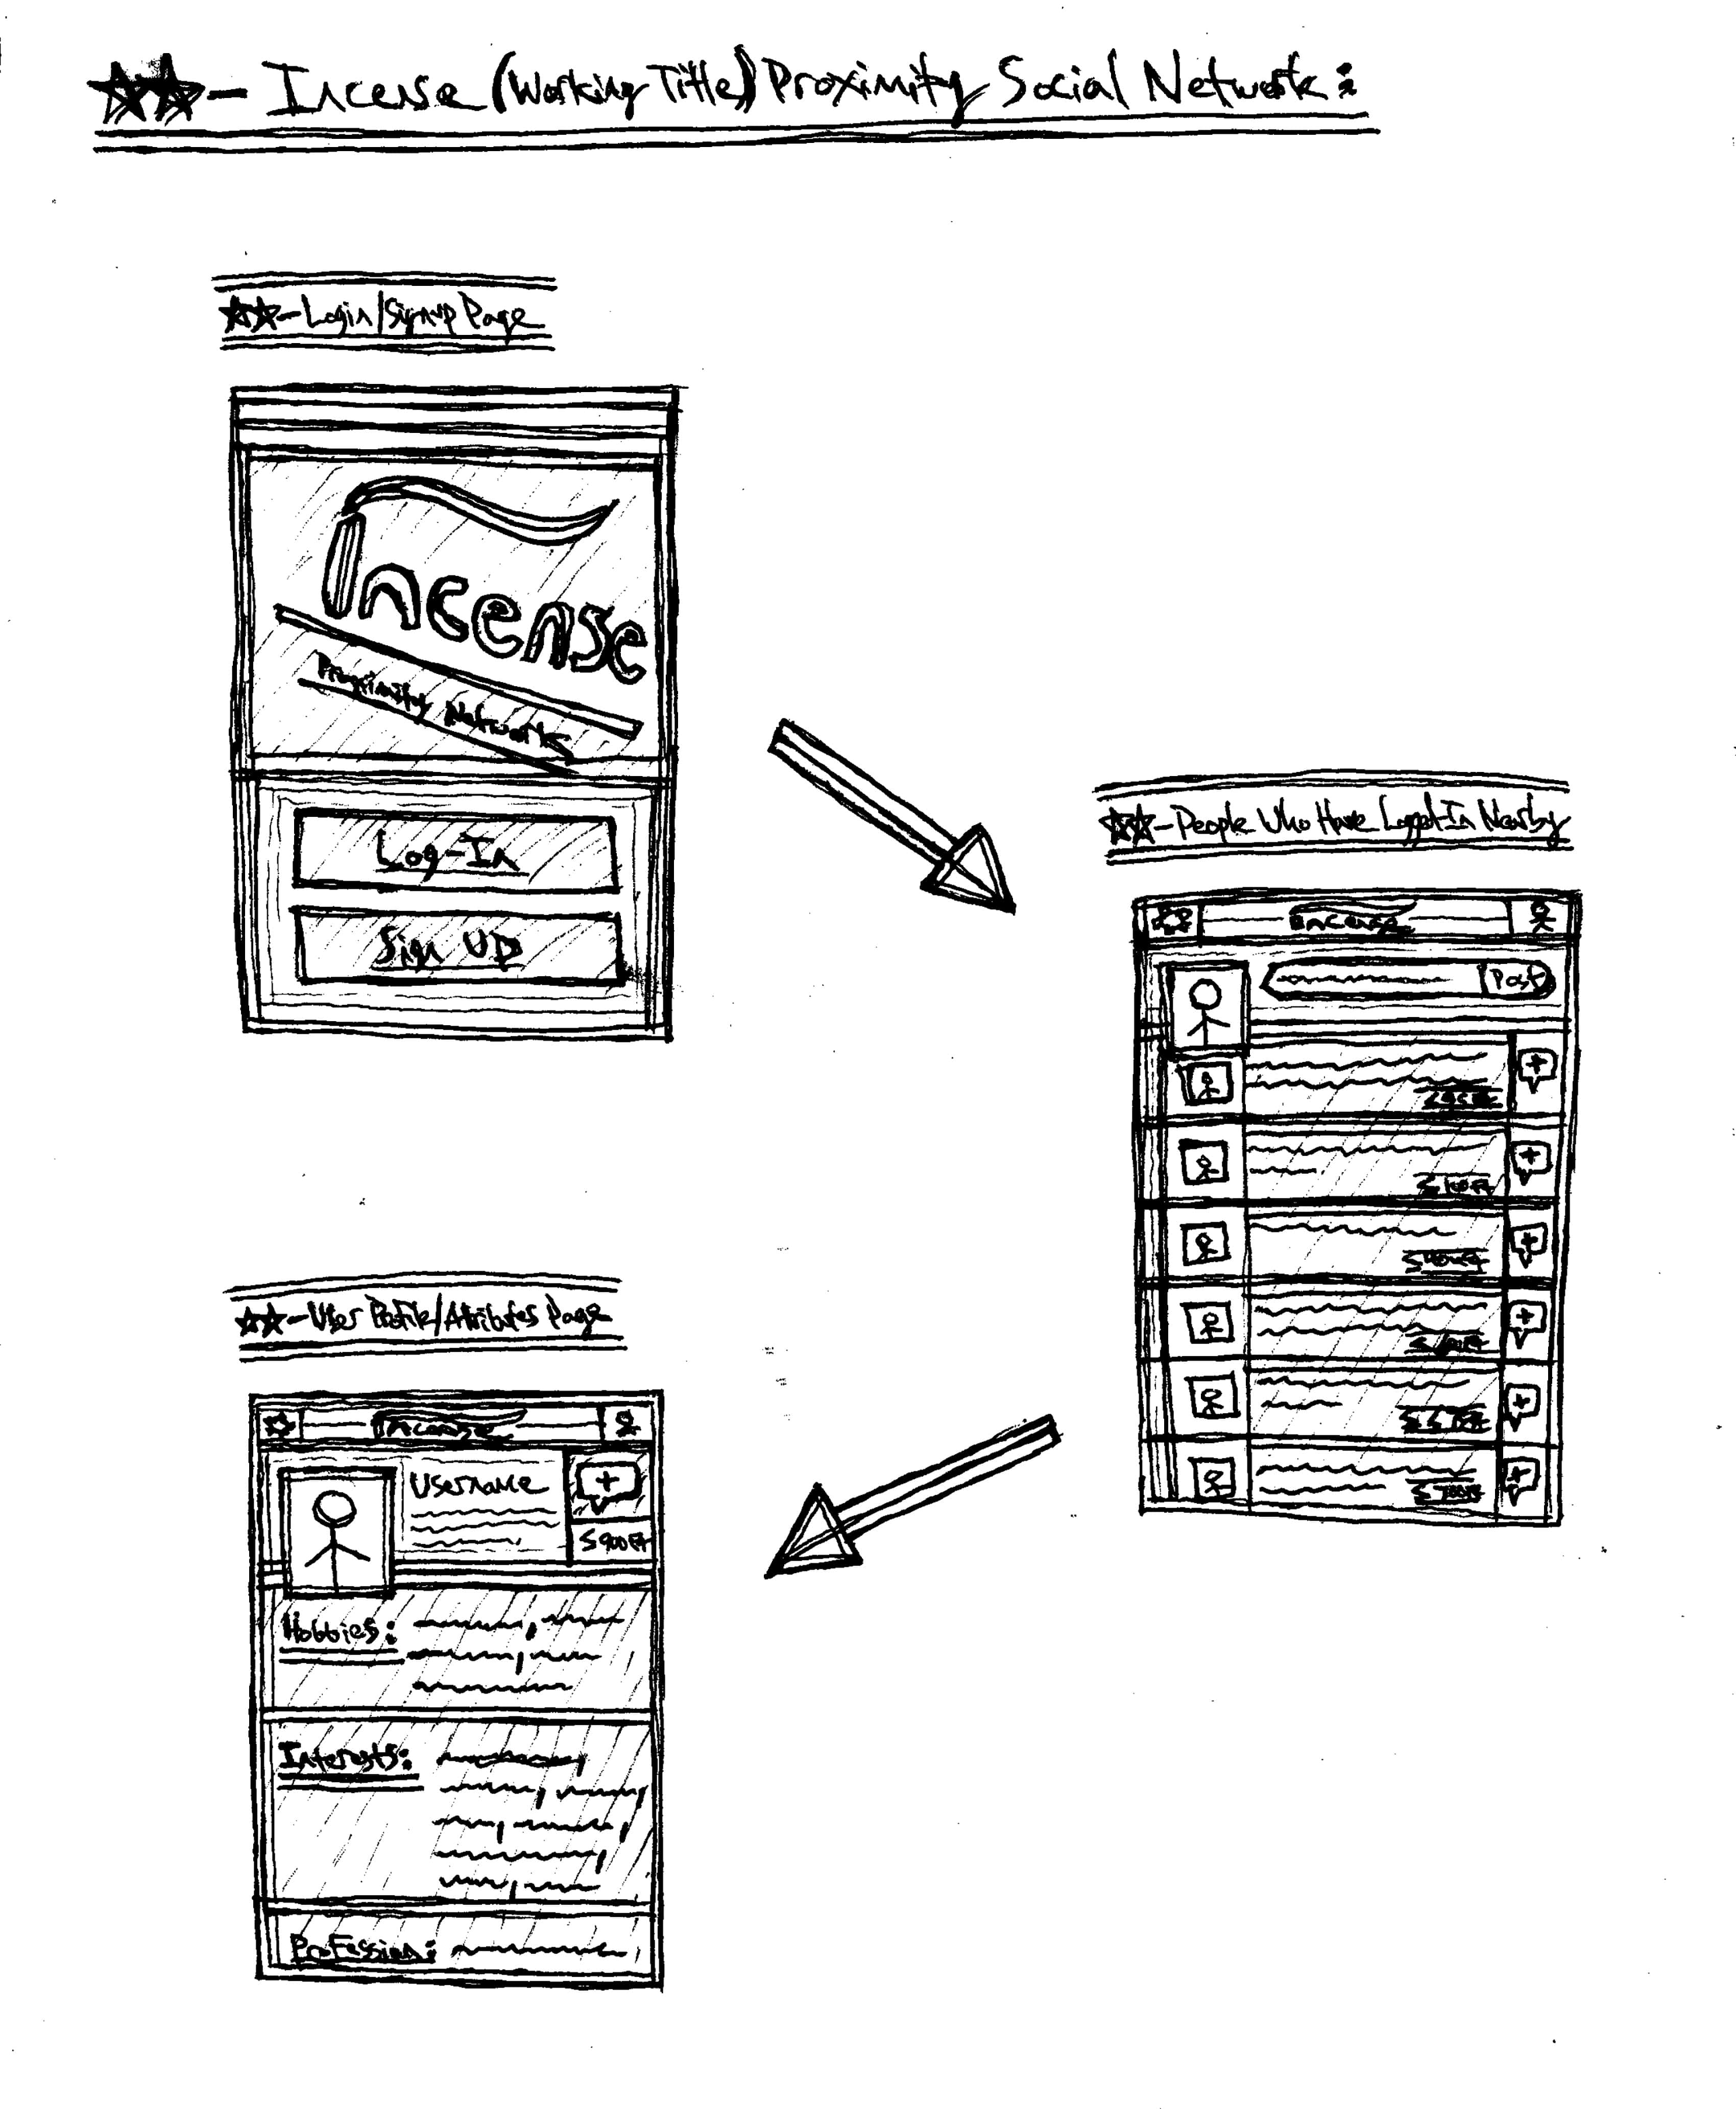 Incense (Working Title) Proximity Social Network:
Login/Signup Page
Incense
Proximity Network
Log-In
Sign UP
People Who Have Logged-In Nearby
Incense
Post
User Profile/Atributes Page
Incense
Username
≤900Ft
Hobbies:
Interests:
Profession: